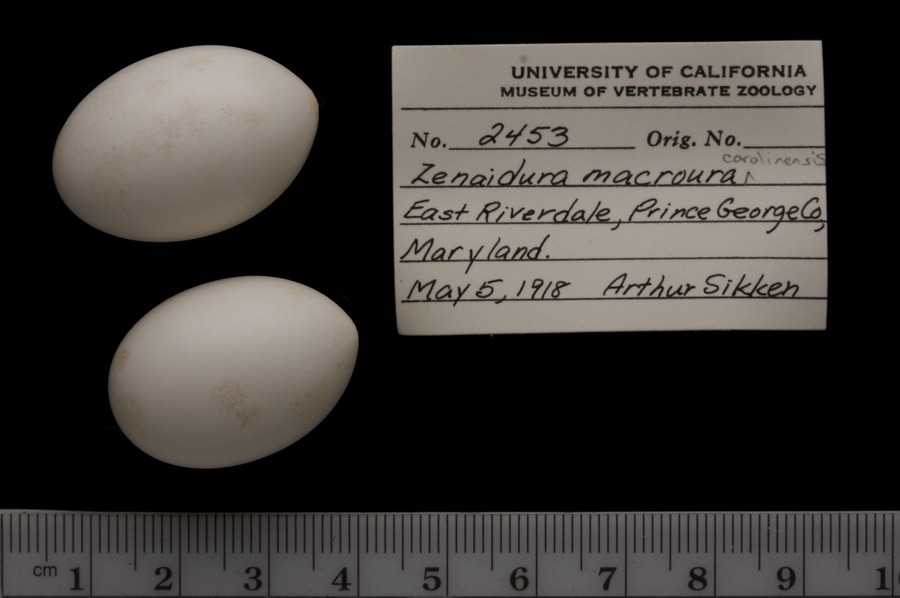 UNIVERSITY OF CALIFORNIA
MUSEUM OF VERTEBRATE ZOOLOGY
No. 2453 Orig. No.
carolinensis
Zenaidura macroura ^
East Riverdale, Prince George Co,
Maryland.
May 5, 1918 Arthur Sikken
cm 1 2 3 4 5 6 7 8 9 1